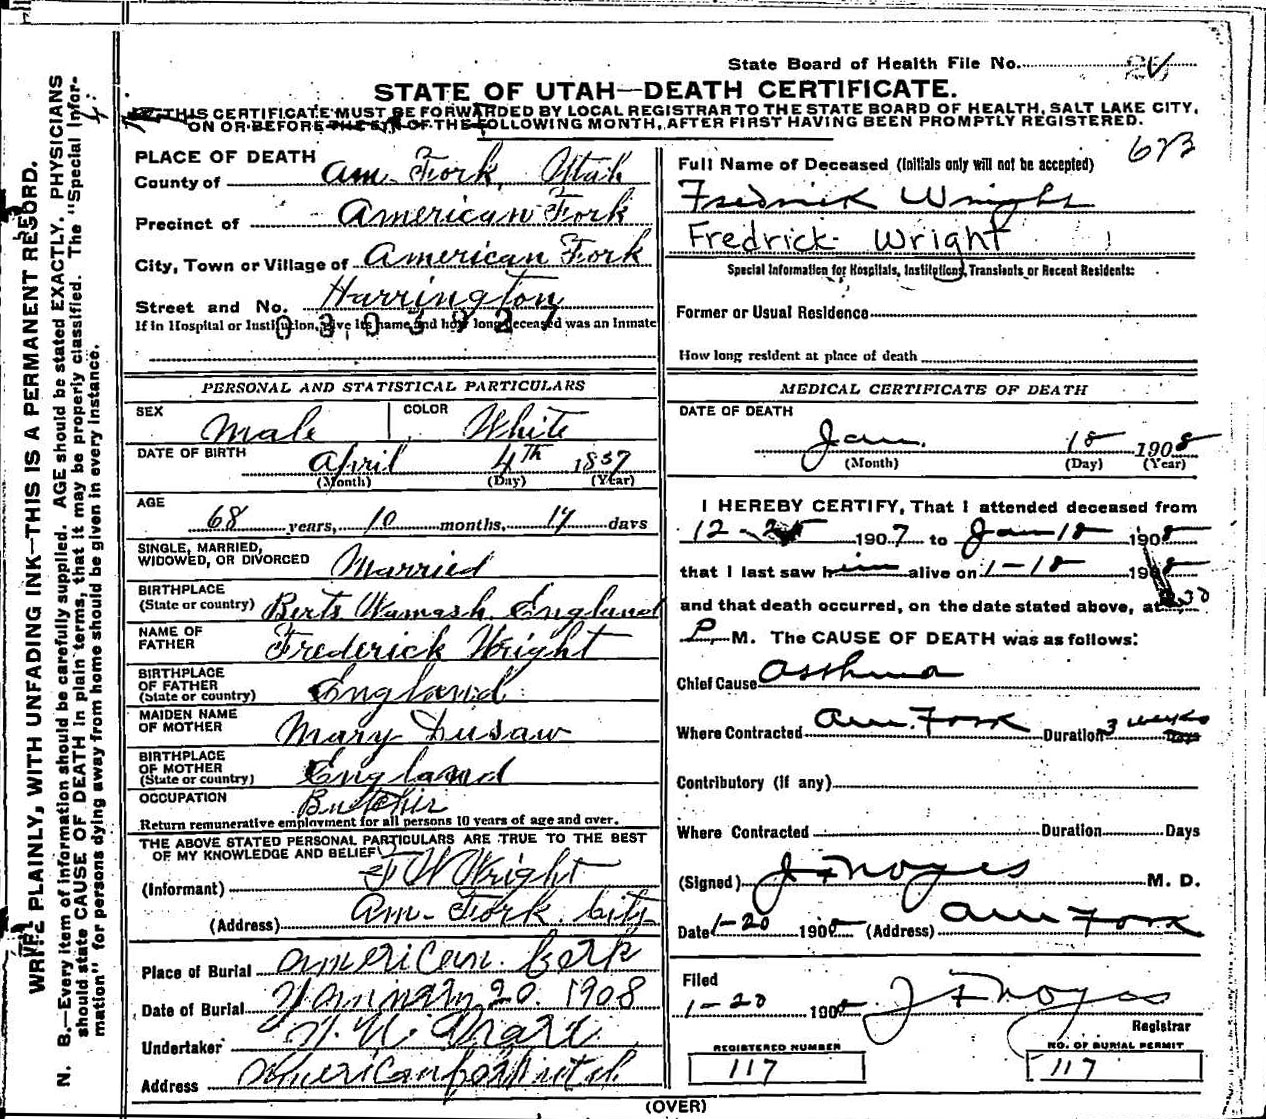 State Board of Health File No.
STATE OF UTAH—DEATH CERTIFICATE.
THIS CERTIFICATE MUST BE FORWARDED BY LOCAL REGISTRAR TO THE STATE BOARD OF HEALTH, SALT LAKE CITY,
ON OR BEFORE THE OF THE FOLLOWING MONTH, AFTER FIRST HAVING BEEN PROMPTLY REGISTERED.
673
PLACE OF DEATH
County of Am. Fork, Utah
Precinct of American Fork
City, Town or Village of American Fork
Street and No. Harrington
If in Hospital or Institution, give its name and how long deceased was an Inmate
Full Name of Deceased (Initials only will not be accepted)
Fredrick Wright
Fredrick Wright
Special Information for Hospitals, Institutions, Transients or Recent Residents:
Former or Usual Residence
How long resident at place of death
PERSONAL AND STATISTICAL PARTICULARS
SEX Male COLOR White
DATE OF BIRTH April 4th 1837
(Month) (Day) (Year)
AGE
68 years, 10 months, 14 days
SINGLE, MARRIED,
WIDOWED, OR DIVORCED Married
BIRTHPLACE
(State or country) England
NAME OF
FATHER Frederick Wright
BIRTHPLACE
OF FATHER
(State or country) England
MAIDEN NAME
OF MOTHER Mary
BIRTHPLACE
OF MOTHER
(State or country) England
OCCUPATION Butcher
Return remunerative employment for all persons 10 years of age and over.
THE ABOVE STATED PERSONAL PARTICULARS ARE TRUE TO THE BEST
OF MY KNOWLEDGE AND BELIEF
(Informant) F W Wright
(Address) Am. Fork City
Place of Burial American Fork
Date of Burial January 20. 1908
Undertaker
Address American Fork Utah
MEDICAL CERTIFICATE OF DEATH
DATE OF DEATH
Jan. 18 1908
(Month) (Day) (Year)
I HEREBY CERTIFY, That I attended deceased from
12 - 1907 to Jan 18 1908
that I last saw him alive on 1-18 1908
and that death occurred, on the date stated above, at
P. M. The CAUSE OF DEATH was as follows:
Chief Cause Asthma
Where Contracted Am. Fork Duration 3 weeks
Contributory (if any)
Where Contracted Duration Days
(Signed) J F Noyes M. D.
Date 1-20 1908 (Address) Am Fork
Filed
1-20 1908 J F Noyes
Registrar
REGISTERED NUMBER
117
NO. OF BURIAL PERMIT
117
(OVER)
WRITE PLAINLY, WITH UNFADING INK—THIS IS A PERMANENT RECORD.
N. B.—Every item of information should be carefully supplied. AGE should be stated EXACTLY. PHYSICIANS
should state CAUSE OF DEATH in plain terms, that it may be properly classified. The "Special Infor-
mation" for persons dying away from home should be given in every instance.